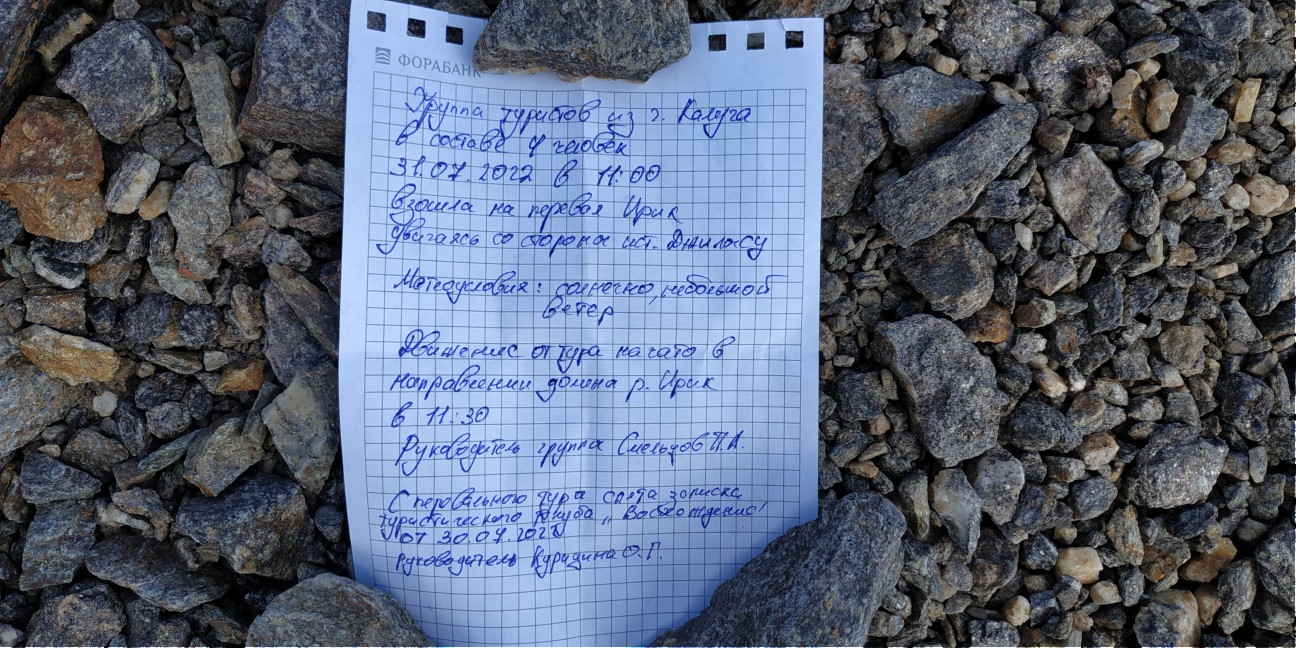 ФОРАБАНК
Группа туристов из г. Калуга
в составе 4 человек
31.07.2022 в 11:00
взошла на перевал Ирик
двигаясь со стороны ист. Джилысу
Метеоусловия: солнечно, небольшой
ветер
Движение от тура начато в
направлении долины р. Ирик
в 11:30
Руководитель группы Смельцов П.А.
С перевального тура снята записка
туристического клуба „Восхождение"
от 30.07.2022
Руководитель Курицина О.П.